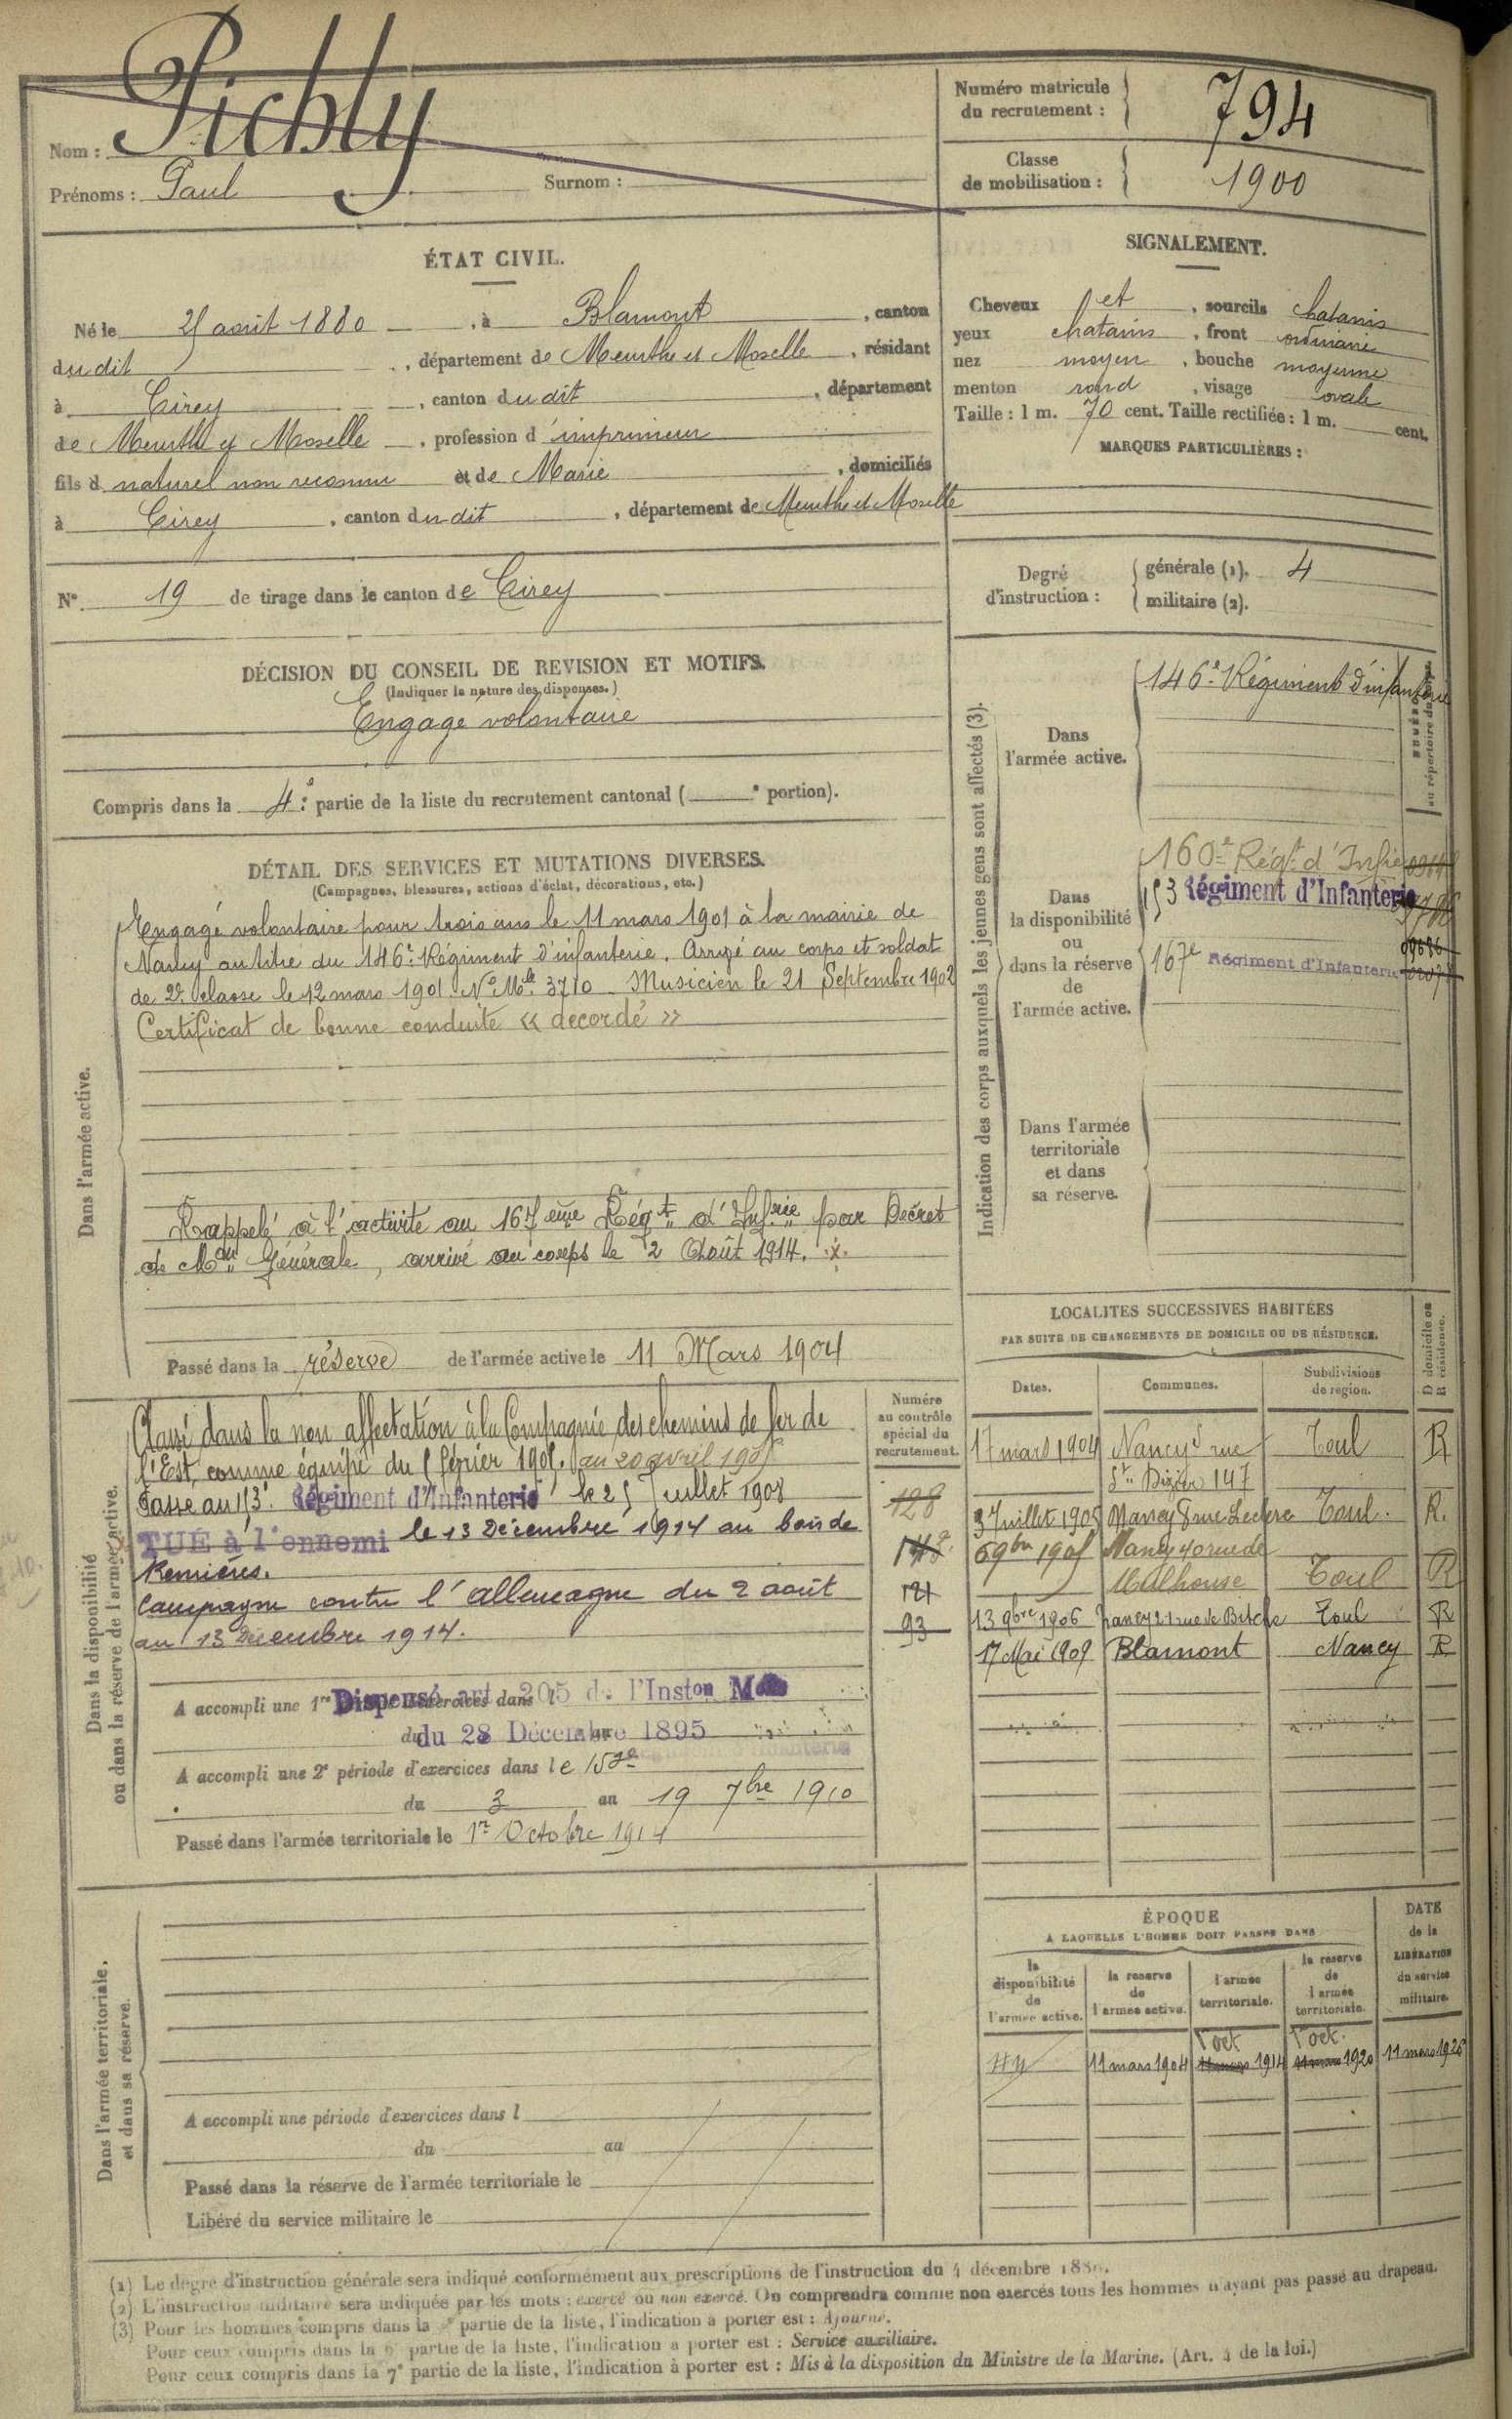 Nom : Pichly
Prénoms : Paul Surnom :
Numéro matricule
du recrutement : 794
Classe
de mobilisation : 1900
ÉTAT CIVIL.
Né le août 1880, à Blamont, canton
du dit, département de Meurthe et Moselle, résidant
à Cirey, canton du dit, département
de Meurthe et Moselle, profession d'imprimeur
fils d naturel non reconnu et de Marie, domiciliés
à Cirey, canton du dit, département de Meurthe et Moselle
N° 19 de tirage dans le canton de Cirey
SIGNALEMENT.
Cheveux et, sourcils chatains
yeux chatains, front ordinaire
nez moyen, bouche moyenne
menton rond, visage ovale
Taille : 1 m. 70 cent. Taille rectifiée : 1 m. cent.
MARQUES PARTICULIÈRES :
Degré
d'instruction :
générale (1). 4
militaire (2).
DÉCISION DU CONSEIL DE REVISION ET MOTIFS.
(Indiquer la nature des dispenses.)
Engagé volontaire
Compris dans la 4e partie de la liste du recrutement cantonal ( e portion).
DÉTAIL DES SERVICES ET MUTATIONS DIVERSES.
(Campagnes, blessures, actions d'éclat, décorations, etc.)
Dans l'armée active.
Engagé volontaire pour trois ans le 11 mars 1901 à la mairie de
Nancy au titre du 146e Régiment d'infanterie. Arrivé au corps et soldat
de 2e classe le 12 mars 1901. No Mle 3710 Musicien le 21 Septembre 1902
Certificat de bonne conduite « accordé »
Rappelé à l'activité au 167ème Régt d'Infrie par Décret
de Mon Générale, arrivé au corps le 2 Août 1914.
Passé dans la réserve de l'armée active le 11 Mars 1904
Indication des corps auxquels les jeunes gens sont affectés (3).
Dans
l'armée active.
146e Régiment d'infanterie
Dans
la disponibilité
ou
dans la réserve
de
l'armée active.
160e Régt d'Infie
153 Régiment d'Infanterie
167e Régiment d'Infanterie
Dans l'armée
territoriale
et dans
sa réserve.
LOCALITÉS SUCCESSIVES HABITÉES
PAR SUITE DE CHANGEMENTS DE DOMICILE OU DE RÉSIDENCE.
Dates. Communes. Subdivisions de région. D domicile ou R résidence.
17 mars 1904 Nancy rue St Dizier 147 Toul R
3 Juillet 1905 Nancy rue Leclerc Toul. R.
Nancy rue de Mulhouse Toul R
13 9bre 1906 Nancy 21 rue de Bitche Toul R
17 Mai 1909 Blamont Nancy R
Dans la disponibilité
ou dans la réserve de l'armée active.
Numéro
au contrôle
spécial du
recrutement.
128
121
93
Classé dans la non affectation à la Compagnie des chemins de fer de
l'Est, comme équipé du février 1905. au 20 avril 1905
Passé au 153e Régiment d'Infanterie le 25 Juillet 1908
TUÉ à l'ennemi le 13 Décembre 1914 au bois de
Remières.
Campagne contre l'Allemagne du 2 août
au 13 Décembre 1914.
A accompli une 1re période d'exercices dans l
Dispensé art. 205 de l'Inston Mle
du 28 Décembre 1895
A accompli une 2e période d'exercices dans le 153e
du 3 au 19 7bre 1910
Passé dans l'armée territoriale le 1er Octobre 1914
Dans l'armée territoriale,
et dans sa réserve.
A accompli une période d'exercices dans l
du au
Passé dans la réserve de l'armée territoriale le
Libéré du service militaire le
ÉPOQUE
A LAQUELLE L'HOMME DOIT PASSER DANS
DATE
de la
LIBÉRATION
du service
militaire.
la disponibilité de l'armée active.
la réserve de l'armée active.
l'armée territoriale.
la réserve de l'armée territoriale.
11 mars 1904
1er oct 1914
1er oct. 1920
11 mars 1926
(1) Le degré d'instruction générale sera indiqué conformément aux prescriptions de l'instruction du 4 décembre 1889.
(2) L'instruction militaire sera indiquée par les mots : exercé ou non exercé. On comprendra comme non exercés tous les hommes n'ayant pas passé au drapeau.
(3) Pour les hommes compris dans la partie de la liste, l'indication à porter est : Ajourné.
Pour ceux compris dans la 6e partie de la liste, l'indication à porter est : Service auxiliaire.
Pour ceux compris dans la 7e partie de la liste, l'indication à porter est : Mis à la disposition du Ministre de la Marine. (Art. 4 de la loi.)